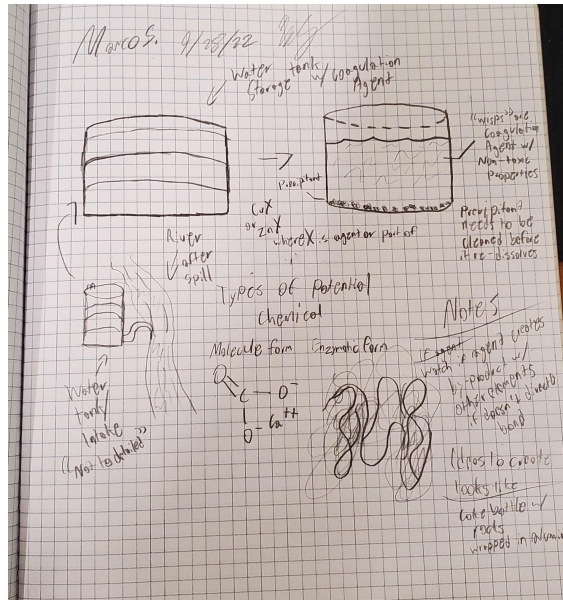 Marco S. 9/28/22
Water
Storage tank
w/ Coagulation
Agent
"Wisps" are
Coagulation
Agent w/
Non-toxic
Properties
Precipitant
CuX
or ZnX
where X is agent or part of
Precipitant
needs to be
cleaned before
it re-dissolves
River
after
spill
Types of Potential
Chemical
Molecule form
Enzymatic form
O
C
O⁻
O⁻ Ca⁺⁺
Water
tank/
Intake
"Not to detailed"
Notes
If agent
watch if agent creates
by-product w/
other elements
if doesn't directly
bond
Ideas to create
looks like
Coke bottle w/
rods
wrapped in